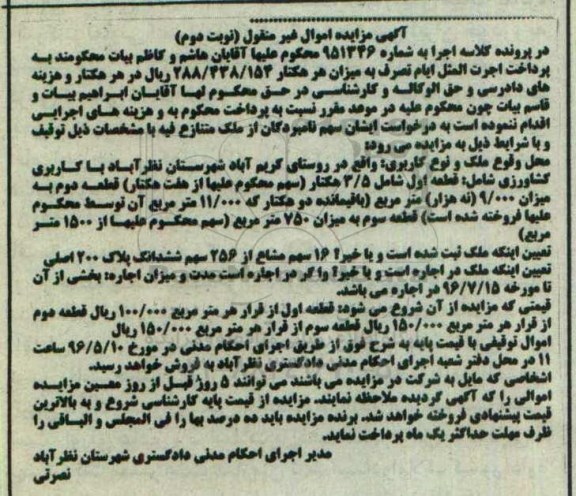 آگهی مزایده اموال غیر منقول (نوبت دوم)
در پرونده کلاسه اجرا به شماره ۹۵۱۳۴۶ محکوم علیها آقایان هاشم و کاظم بیات محکومند به
پرداخت اجرت المثل ایام تصرف به میزان هر هکتار ۲۸۸/۴۳۸/۱۵۴ ریال در هر هکتار و هزینه
های دادرسی و حق الوکاله و کارشناسی در حق محکوم لها آقایان ابراهیم بیات و
قاسم بیات چون محکوم علیه در موعد مقرر نسبت به پرداخت محکوم به و هزینه های اجرایی
اقدام ننموده است به درخواست ایشان سهم نامبردگان از ملک متنازع فیه با مشخصات ذیل توقیف
و با شرایط ذیل به مزایده می رود:
محل وقوع ملک و نوع کاربری: واقع در روستای کریم آباد شهرستان نظرآباد با کاربری
کشاورزی شامل: قطعه اول شامل ۳/۵ هکتار (سهم محکوم علیها از هفت هکتار) قطعه دوم به
میزان ۹/۰۰۰ (نه هزار) متر مربع (باقیمانده دو هکتار که ۱۱/۰۰۰ متر مربع آن توسط محکوم
علیها فروخته شده است) قطعه سوم به میزان ۷۵۰ متر مربع (سهم محکوم علیها از ۱۵۰۰ متر
مربع)
تعیین اینکه ملک ثبت شده است و یا خیر؟ ۱۶ سهم مشاع از ۲۵۶ سهم ششدانگ پلاک ۲۰۰ اصلی
تعیین اینکه ملک در اجاره است و یا خیر؟ و اگر در اجاره است مدت و میزان اجاره: بخشی از آن
تا مورخه ۹۶/۷/۱۵ در اجاره می باشد.
قیمتی که مزایده از آن شروع می شود: قطعه اول از قرار هر متر مربع ۱۰۰/۰۰۰ ریال قطعه دوم
از قرار هر متر مربع ۱۵۰/۰۰۰ ریال قطعه سوم از قرار هر متر مربع ۱۵۰/۰۰۰ ریال
اموال توقیفی با قیمت پایه به شرح فوق از طریق اجرای احکام مدنی در مورخ ۹۶/۵/۱۰ ساعت
۱۱ در محل دفتر شعبه اجرای احکام مدنی دادگستری نظرآباد به فروش خواهد رسید.
اشخاصی که مایل به شرکت در مزایده می باشند می توانند ۵ روز قبل از روز معین مزایده
اموالی را که آگهی گردیده ملاحظه نمایند. مزایده از قیمت پایه کارشناسی شروع و به بالاترین
قیمت پیشنهادی فروخته خواهد شد. برنده مزایده باید ده درصد بها را فی المجلس و الباقی را
ظرف مهلت حداکثر یک ماه پرداخت نماید.
مدیر اجرای احکام مدنی دادگستری شهرستان نظرآباد
نصرتی